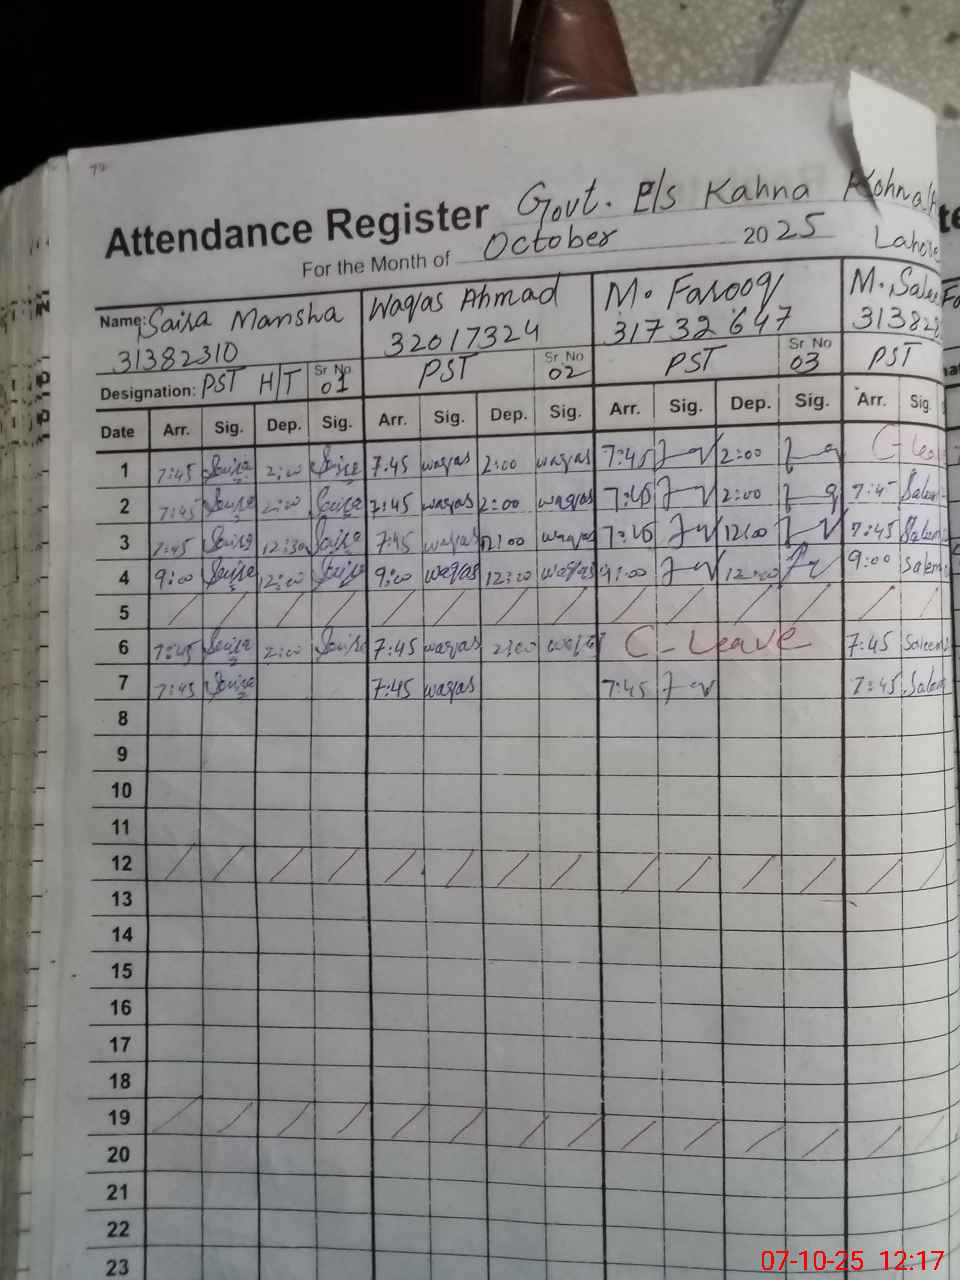 Attendance Register Govt. P/S Kahna Kohna
For the Month of October 2025 Lahore
Name: Saira Mansha Waqas Ahmad M. Farooq M. Salee
31382310 32017324 31732647 31382
Designation: PST H/T Sr No 01 PST Sr No 02 PST Sr No 03 PST
Date Arr. Sig. Dep. Sig. Arr. Sig. Dep. Sig. Arr. Sig. Dep. Sig. Arr. Sig.
1 7:45 Saira 2:00 Saira 7:45 waqas 2:00 waqas 7:45 2:00 C-Leav
2 7:45 Saira 2:00 Saira 7:45 waqas 2:00 waqas 7:45 2:00 7:45 Saleem
3 7:45 Saira 12:30 Saira 7:45 waqas 12:00 waqas 7:45 12:00 7:45 Saleem
4 9:00 Saira 12:00 Saira 9:00 waqas 12:00 waqas 9:00 12:00 9:00 Saleem
5
6 7:45 Saira 2:00 Saira 7:45 waqas 2:00 waqas C-Leave 7:45 Saleem
7 7:45 Saira 7:45 waqas 7:45 7:45 Saleem
8
9
10
11
12
13
14
15
16
17
18
19
20
21
22
23
07-10-25 12:17